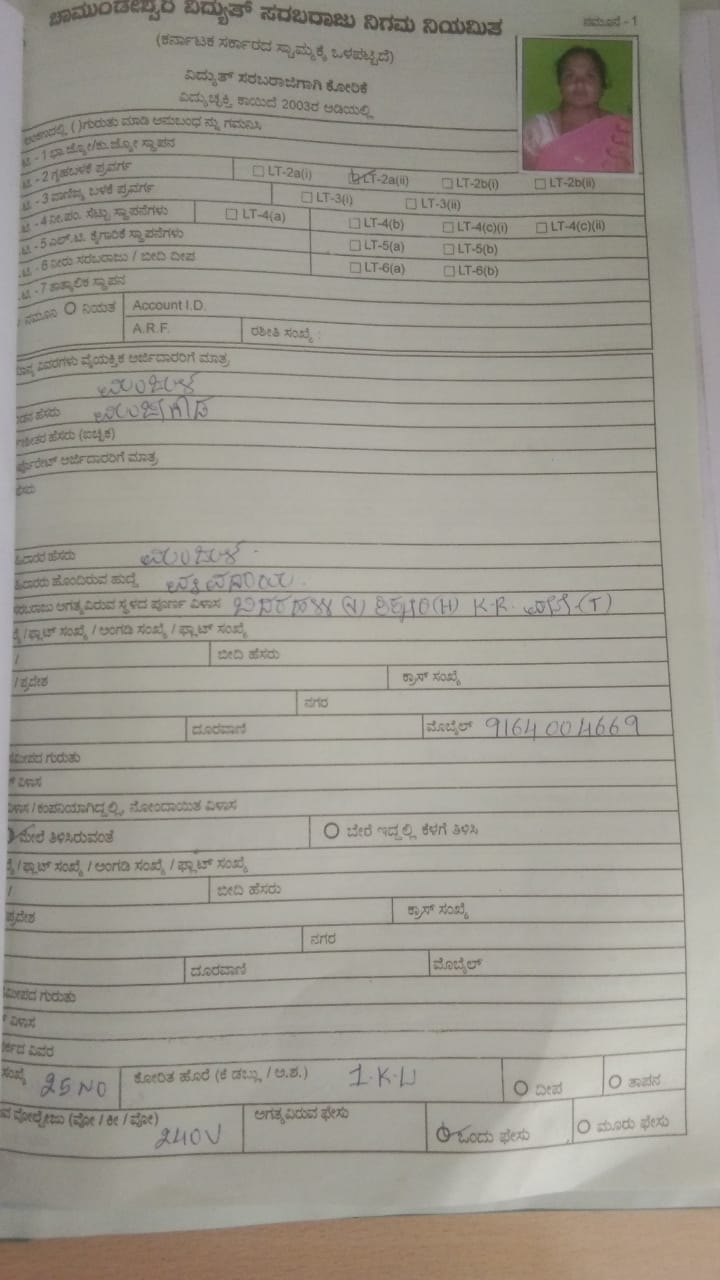 ಚಾಮುಂಡೇಶ್ವರಿ ವಿದ್ಯುತ್ ಸರಬರಾಜು ನಿಗಮ ನಿಯಮಿತ
ನಮೂನೆ - 1
(ಕರ್ನಾಟಕ ಸರ್ಕಾರದ ಸ್ವಾಮ್ಯಕ್ಕೆ ಒಳಪಟ್ಟಿದೆ)
ವಿದ್ಯುತ್ ಸರಬರಾಜಿಗಾಗಿ ಕೋರಿಕೆ
ವಿದ್ಯುಚ್ಛಕ್ತಿ ಕಾಯಿದೆ 2003ರ ಅಡಿಯಲ್ಲಿ
ಅಂಕಣದಲ್ಲಿ ( )ಗುರುತು ಮಾಡಿ ಅನುಬಂಧ ನ್ನು ಗಮನಿಸಿ
- 1 ಭಾ.ಜ್ಯೋ/ಕು.ಜ್ಯೋ ಸ್ಥಾಪನ
- 2 ಗೃಹಬಳಕೆ ಪ್ರವರ್ಗ LT-2a(i) LT-2a(ii) LT-2b(i) LT-2b(ii)
- 3 ವಾಣಿಜ್ಯ ಬಳಕೆ ಪ್ರವರ್ಗ LT-3(i) LT-3(ii)
- 4 ನೀ.ಪಂ. ಸೆಟ್ಟು ಸ್ಥಾಪನೆಗಳು LT-4(a) LT-4(b) LT-4(c)(i) LT-4(c)(ii)
- 5 ಎಲ್.ಟಿ. ಕೈಗಾರಿಕೆ ಸ್ಥಾಪನೆಗಳು LT-5(a) LT-5(b)
- 6 ನೀರು ಸರಬರಾಜು / ಬೀದಿ ದೀಪ LT-6(a) LT-6(b)
- 7 ತಾತ್ಕಾಲಿಕ ಸ್ಥಾಪನ
ನಮೂನಿ ನಿಯತ Account I.D.
A.R.F. ರಶೀತಿ ಸಂಖ್ಯೆ :
ವಿವರಗಳು ವೈಯಕ್ತಿಕ ಅರ್ಜಿದಾರರಿಗೆ ಮಾತ್ರ
ಮಂಜುಳ
ಹೆಸರು
ಹೆಸರು (ಐಚ್ಛಿಕ)
ಅರ್ಜಿದಾರರಿಗೆ ಮಾತ್ರ
ಹೆಸರು
ಹೆಸರು ಮಂಜುಳ
ಹೊಂದಿರುವ ಹುದ್ದೆ
ಸರಬರಾಜು ಅಗತ್ಯವಿರುವ ಸ್ಥಳದ ಪೂರ್ಣ ವಿಳಾಸ (V) (H) K.R. (T)
/ ಫ್ಲಾಟ್ ಸಂಖ್ಯೆ / ಅಂಗಡಿ ಸಂಖ್ಯೆ / ಫ್ಲಾಟ್ ಸಂಖ್ಯೆ
/ ಬೀದಿ ಹೆಸರು
/ ಪ್ರದೇಶ ಕ್ರಾಸ್ ಸಂಖ್ಯೆ
ನಗರ
ದೂರವಾಣಿ ಮೊಬೈಲ್ 9164004669
ಸಮೀಪದ ಗುರುತು
ವಿಳಾಸ
ವಿಳಾಸ / ಕಂಪನಿಯಾಗಿದ್ದಲ್ಲಿ, ನೋಂದಾಯಿತ ವಿಳಾಸ
ಮೇಲೆ ತಿಳಿಸಿರುವಂತೆ ಬೇರೆ ಇದ್ದಲ್ಲಿ ಕೆಳಗೆ ತಿಳಿಸಿ
/ ಫ್ಲಾಟ್ ಸಂಖ್ಯೆ / ಅಂಗಡಿ ಸಂಖ್ಯೆ / ಫ್ಲಾಟ್ ಸಂಖ್ಯೆ
/ ಬೀದಿ ಹೆಸರು
ಪ್ರದೇಶ ಕ್ರಾಸ್ ಸಂಖ್ಯೆ
ನಗರ
ದೂರವಾಣಿ ಮೊಬೈಲ್
ಸಮೀಪದ ಗುರುತು
ವಿಳಾಸ
ವಿವರ
ಸಂಖ್ಯೆ 25 NO ಕೋರಿತ ಹೊರೆ (ಕೆ ಡಬ್ಲ್ಯು / ಅ.ಶ.) 1.K.W ದೀಪ ತಾಪನ
ವೋಲ್ಟೇಜು (ವೋ / ಕೀ / ವೋ) 240V ಅಗತ್ಯವಿರುವ ಫೇಸು ಒಂದು ಫೇಸು ಮೂರು ಫೇಸು